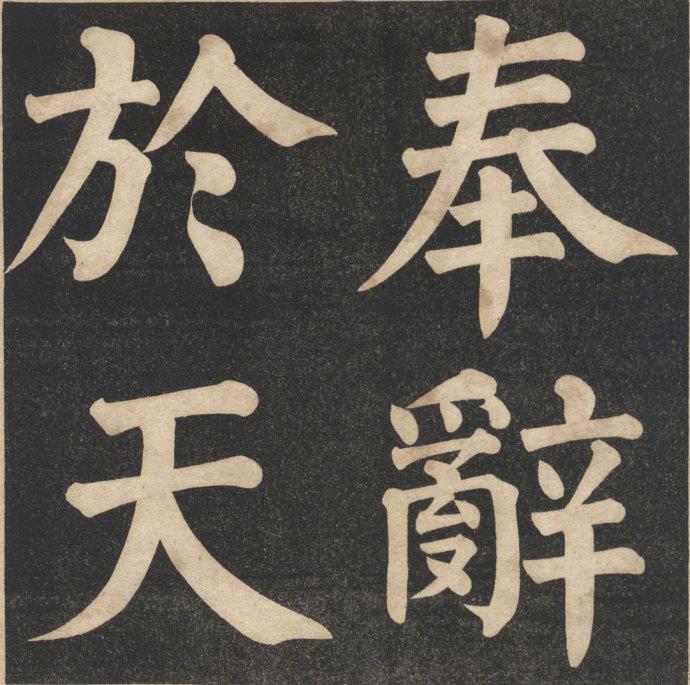 奉辭
於天